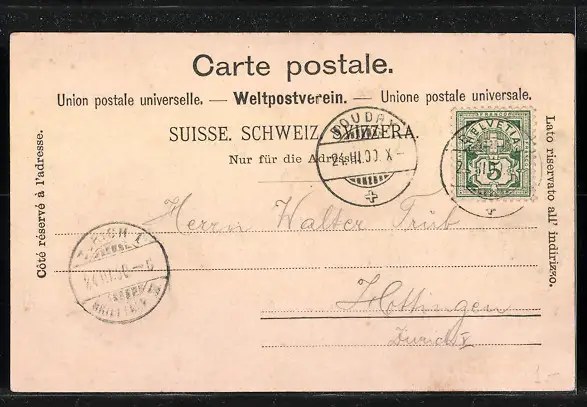 Carte postale.
Union postale universelle. — Weltpostverein. — Unione postale universale.
SUISSE. SCHWEIZ. SVIZZERA.
Nur für die Adresse.
Côté réservé à l'adresse.
Lato riservato all' indirizzo.
BOUDRY
24.III.00.X
HELVETIA
FRANCO
5
Herrn Walter Trüb
Hottingen
Zürich V
24.III.00
BRIEFTR.